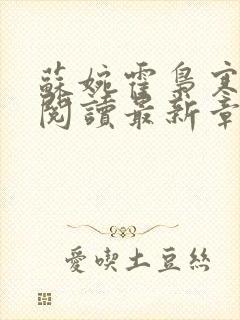 蘇婉霍梟寒
閱讀最新章
愛喫土豆絲